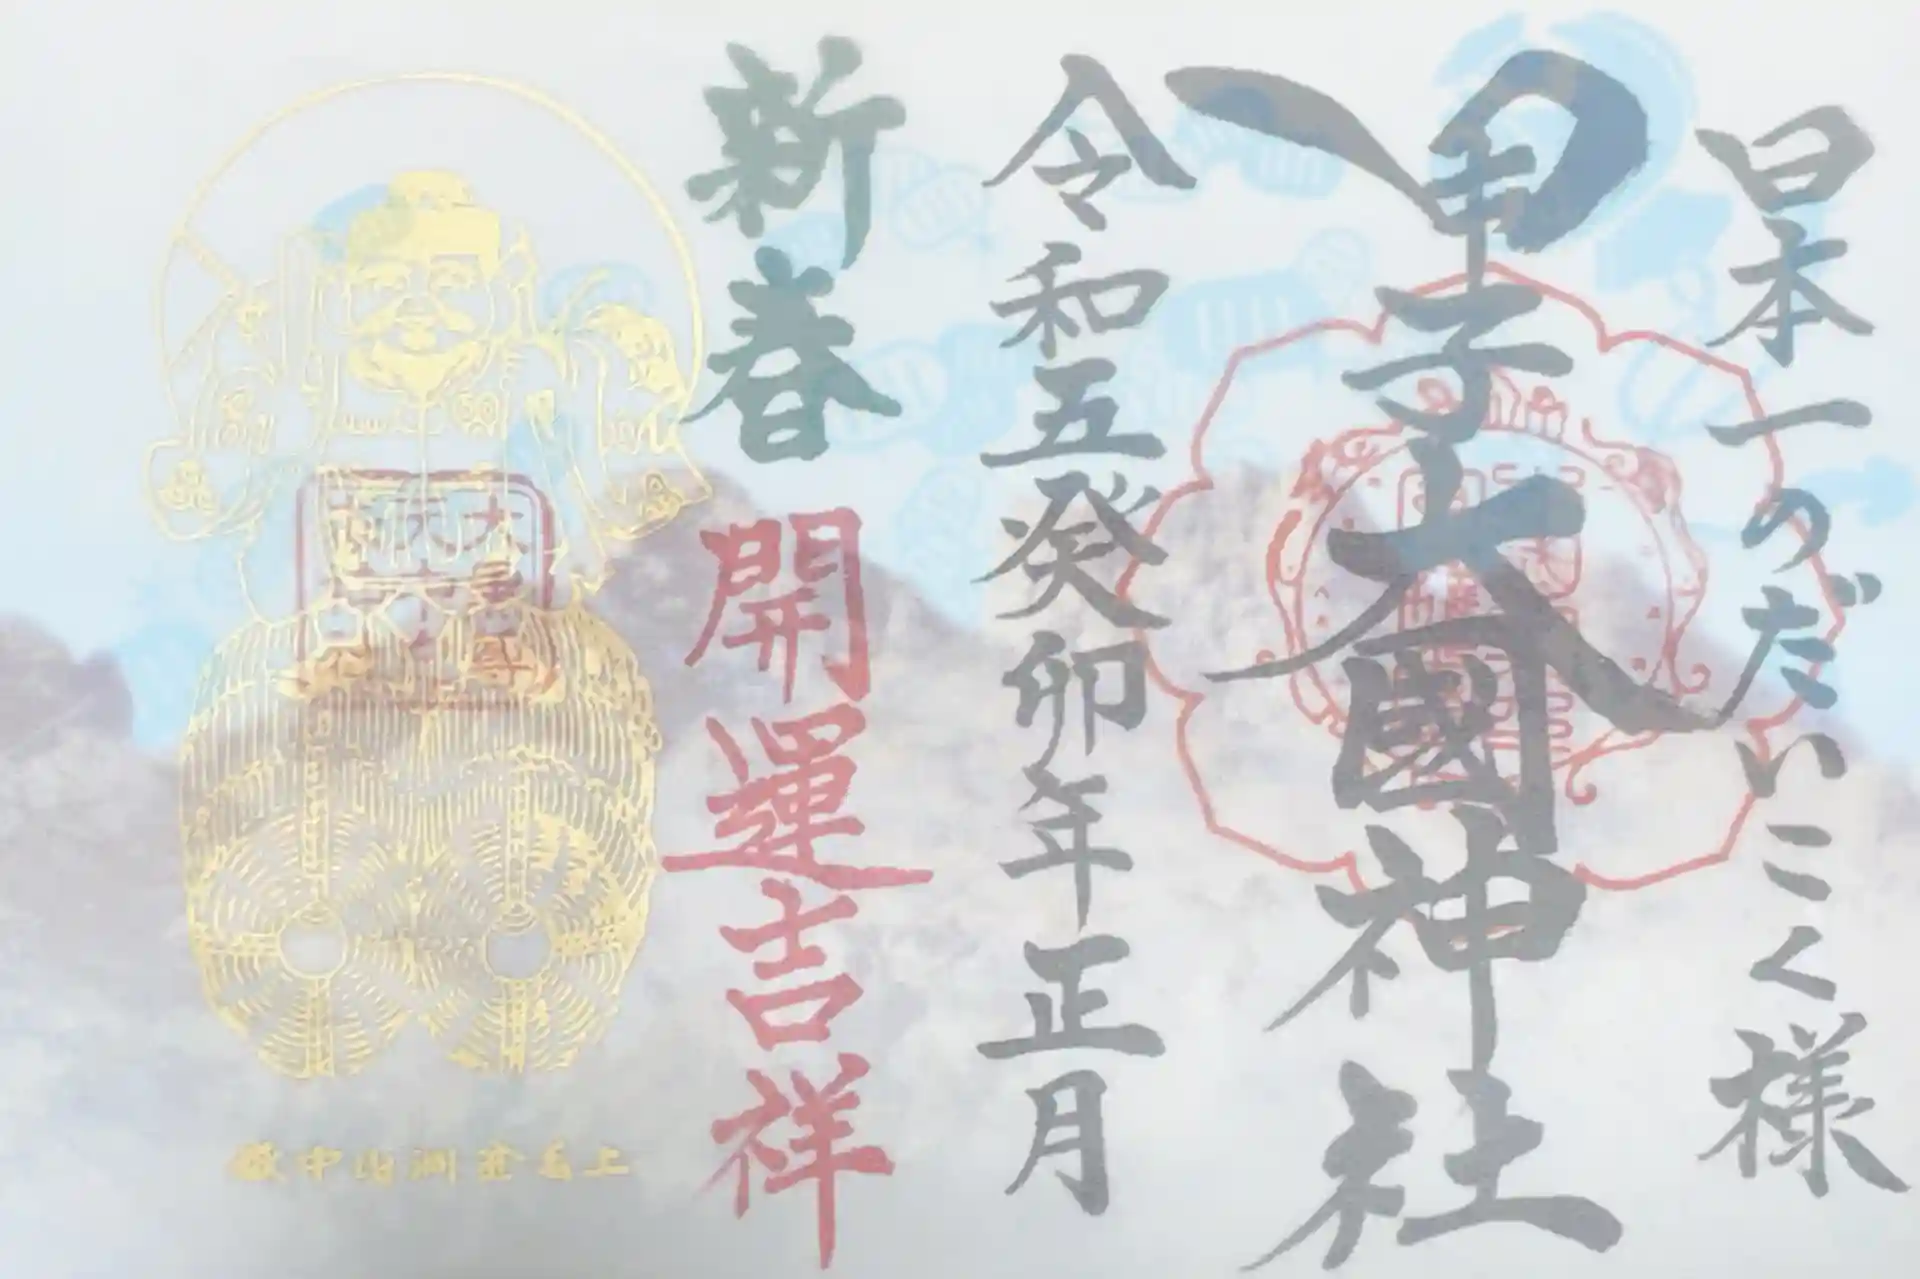 日本一のだいこく様
甲子大國神社
令和五癸卯年正月
新春 開運吉祥
上毛金洞山中嶽